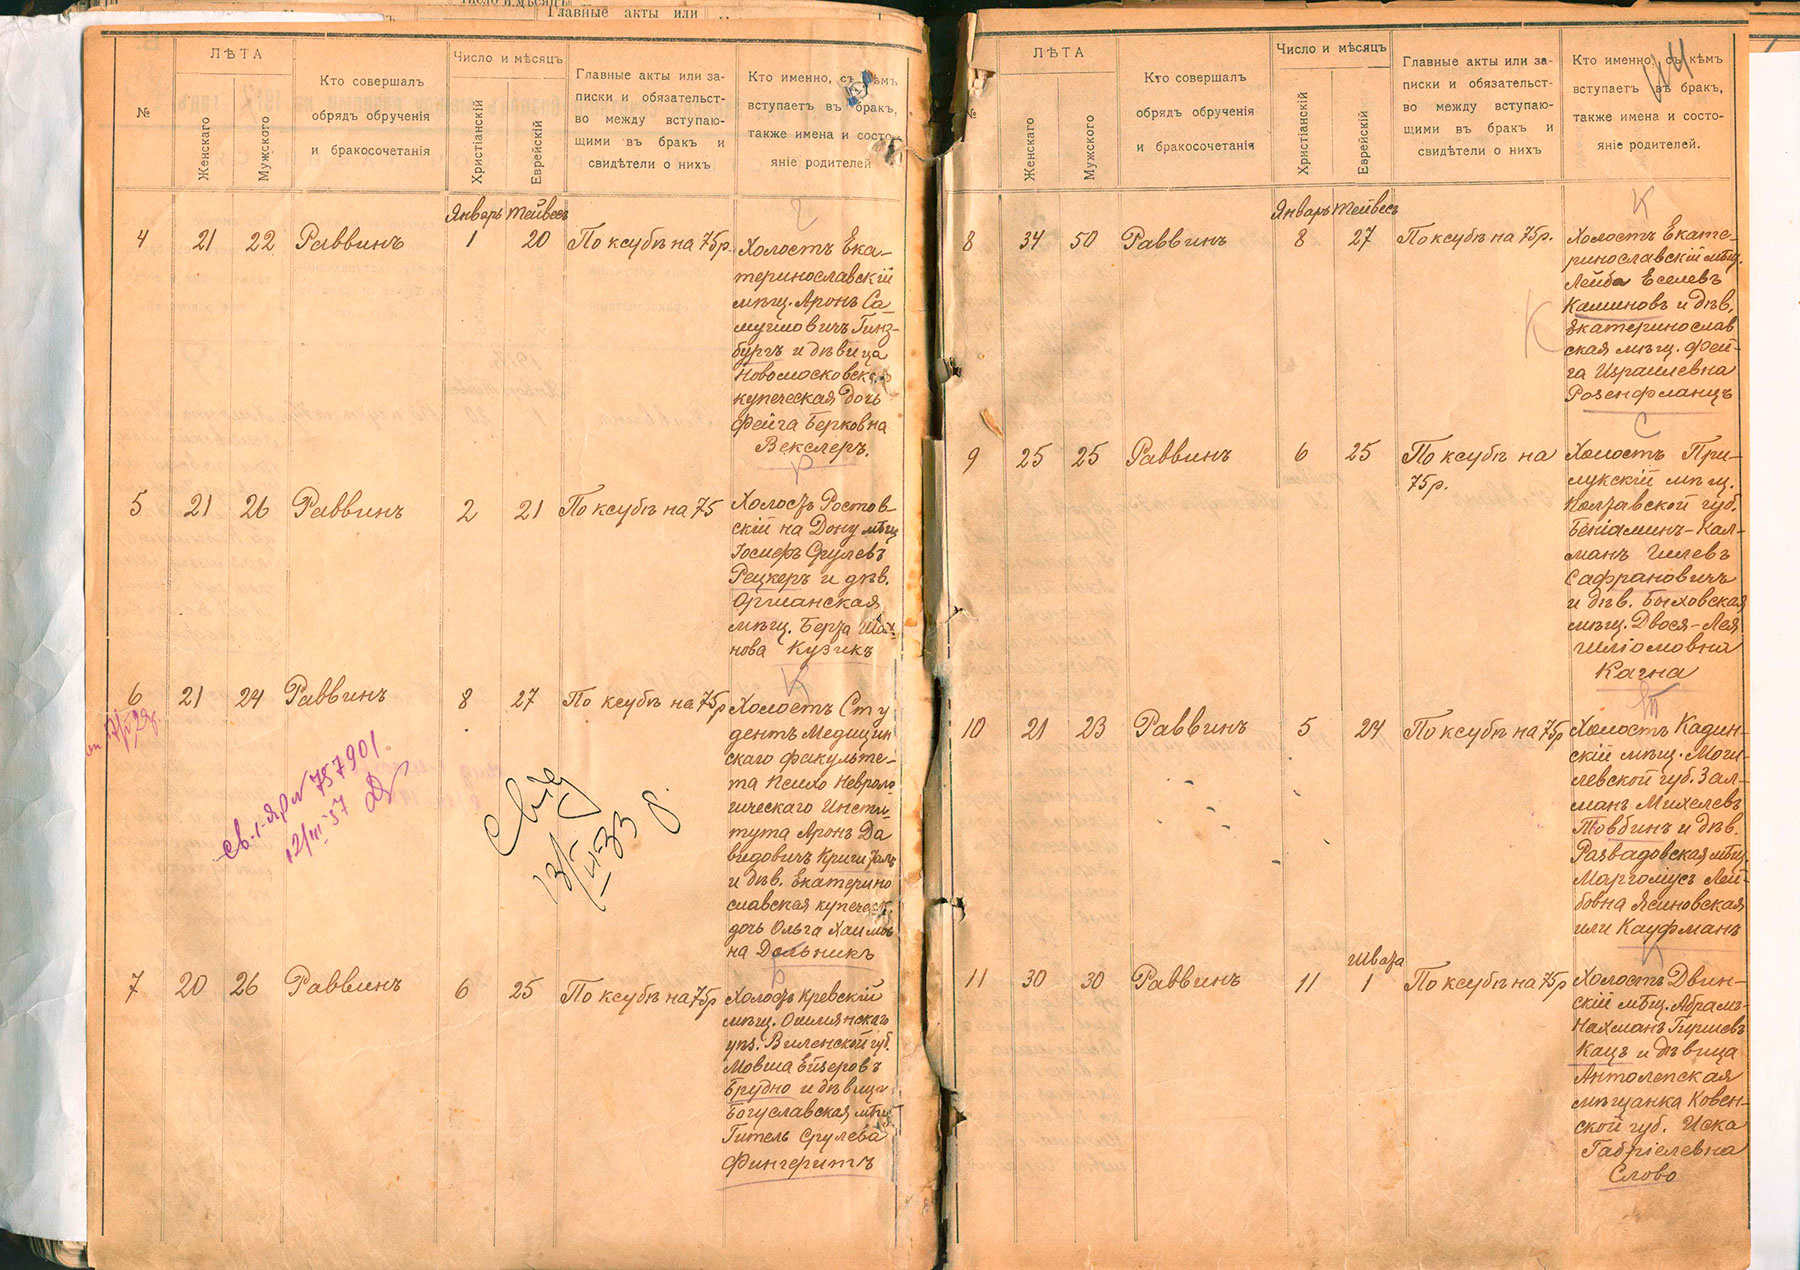 Главные акты или
ЛѢТА
Число и мѣсяцъ
№
Женскаго
Мужского
Кто совершалъ
обрядъ обрученія
и бракосочетанія
Христіанскій
Еврейскій
Главные акты или за-
писки и обязательст-
во между вступаю-
щими въ бракъ и
свидѣтели о нихъ
Кто именно, съ кѣмъ
вступаетъ въ бракъ,
также имена и состо-
яніе родителей
Январь Тейвесъ
4 21 22 Раввинъ 1 20 По ксубѣ на 75р.
Холостъ Ека-
теринославскій
мѣщ. Аронъ Са
муиловичъ Гинз-
бургъ и дѣвица
Новомосковск
купеческая дочь
Фейга Берковна
Векслеръ.
5 21 26 Раввинъ 2 21 По ксубѣ на 75
Холостъ Ростов-
скій на Дону мѣщ
Іосифъ Срулевъ
Рецкеръ и дѣв.
Оргианская
мѣщ. Берта
нова Кузикъ
6 21 24 Раввинъ 8 27 По ксубѣ на 75р
Холостъ Сту
дентъ Медицин
скаго факульте-
та Психо Невроло
гическаго Инсти
тута Аронъ Да
видовичъ
и дѣв. Екатерино
славская купеческ.
дочь Ольга Хаимов
на Дольникъ
св. 1-яр № 757901
12/III-37
Свид
13/VII-33
7 20 26 Раввинъ 6 25 По ксубѣ на 75р
Холостъ Кревскій
мѣщ. Ошмянскаго
упз. Виленской губ.
Мовша Ейзеровъ
Брудно и дѣвица
Богуславская мѣщ
Гитель Срулева
Фингеритъ
ЛѢТА
Число и мѣсяцъ
№
Женскаго
Мужского
Кто совершалъ
обрядъ обрученія
и бракосочетанія
Христіанскій
Еврейскій
Главные акты или за-
писки и обязательст-
во между вступаю-
щими въ бракъ и
свидѣтели о нихъ
Кто именно, съ кѣмъ
вступаетъ въ бракъ,
также имена и состо-
яніе родителей.
Январь Тейвесъ
К
8 34 50 Раввинъ 8 27 По ксубѣ на 75р.
Холостъ Екате-
ринославскій мѣщ.
Лейба Еселевъ
Каминовъ и дѣв.
Екатеринослав
ская мѣщ. Фей-
га Израилевна
Розенфланцъ
С
9 25 25 Раввинъ 6 25 По ксубѣ на
75р.
Холостъ При-
лукскій мѣщ.
Полтавской губ.
Беніаминъ-Кал-
манъ Гилевъ
Сафрановичъ
и дѣв. Быховская
мѣщ. Двося-Лея
Шліомовна
Кагна
10 21 23 Раввинъ 5 24 По ксубѣ на 75р
Холостъ Кадин-
скій мѣщ. Моги
левской губ. Зал-
манъ Михелевъ
Товбинъ и дѣв.
Развадовская мѣщ.
Маргомусъ Лей-
бовна Ясиновская
или Кауфманъ
К
Швата
11 30 30 Раввинъ 11 1 По ксубѣ на 75р
Холостъ Двин-
скій мѣщ. Абрамъ-
Нахманъ Гиршевъ
Кацъ и дѣвица
Антолепская
мѣщанка Ковен-
ской губ. Иска
Габріелевна
Слово